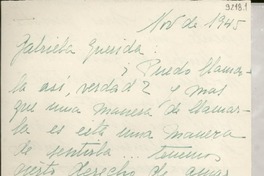 3218.1
Nov de 1945
Gabriela Querida:
¿ Puedo llamar-
la así, verdad? y mas
que una manera de llamar-
la es esta una manera
de sentirla... Tenemos
derecho de amar